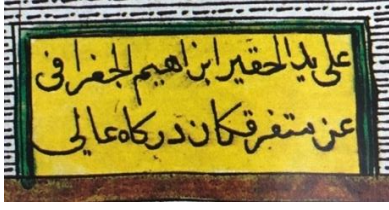 على يد الحقير ابراهيم الجغرافى
عن متفرقكان دركاه عالى